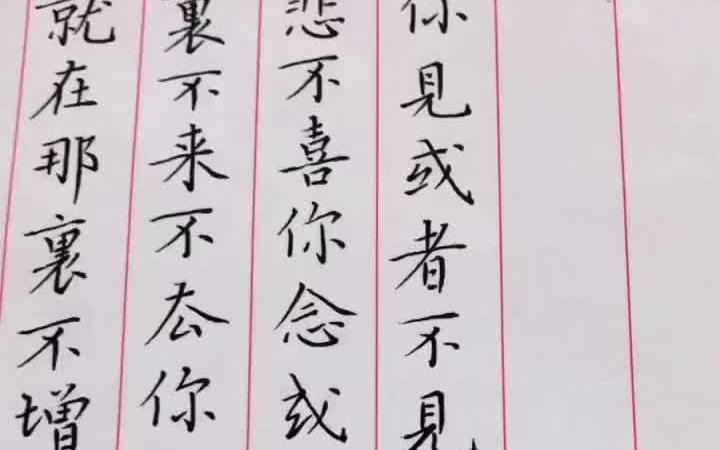 你见或者不见
悲不喜你念或
裏不来不去你
就在那裏不增